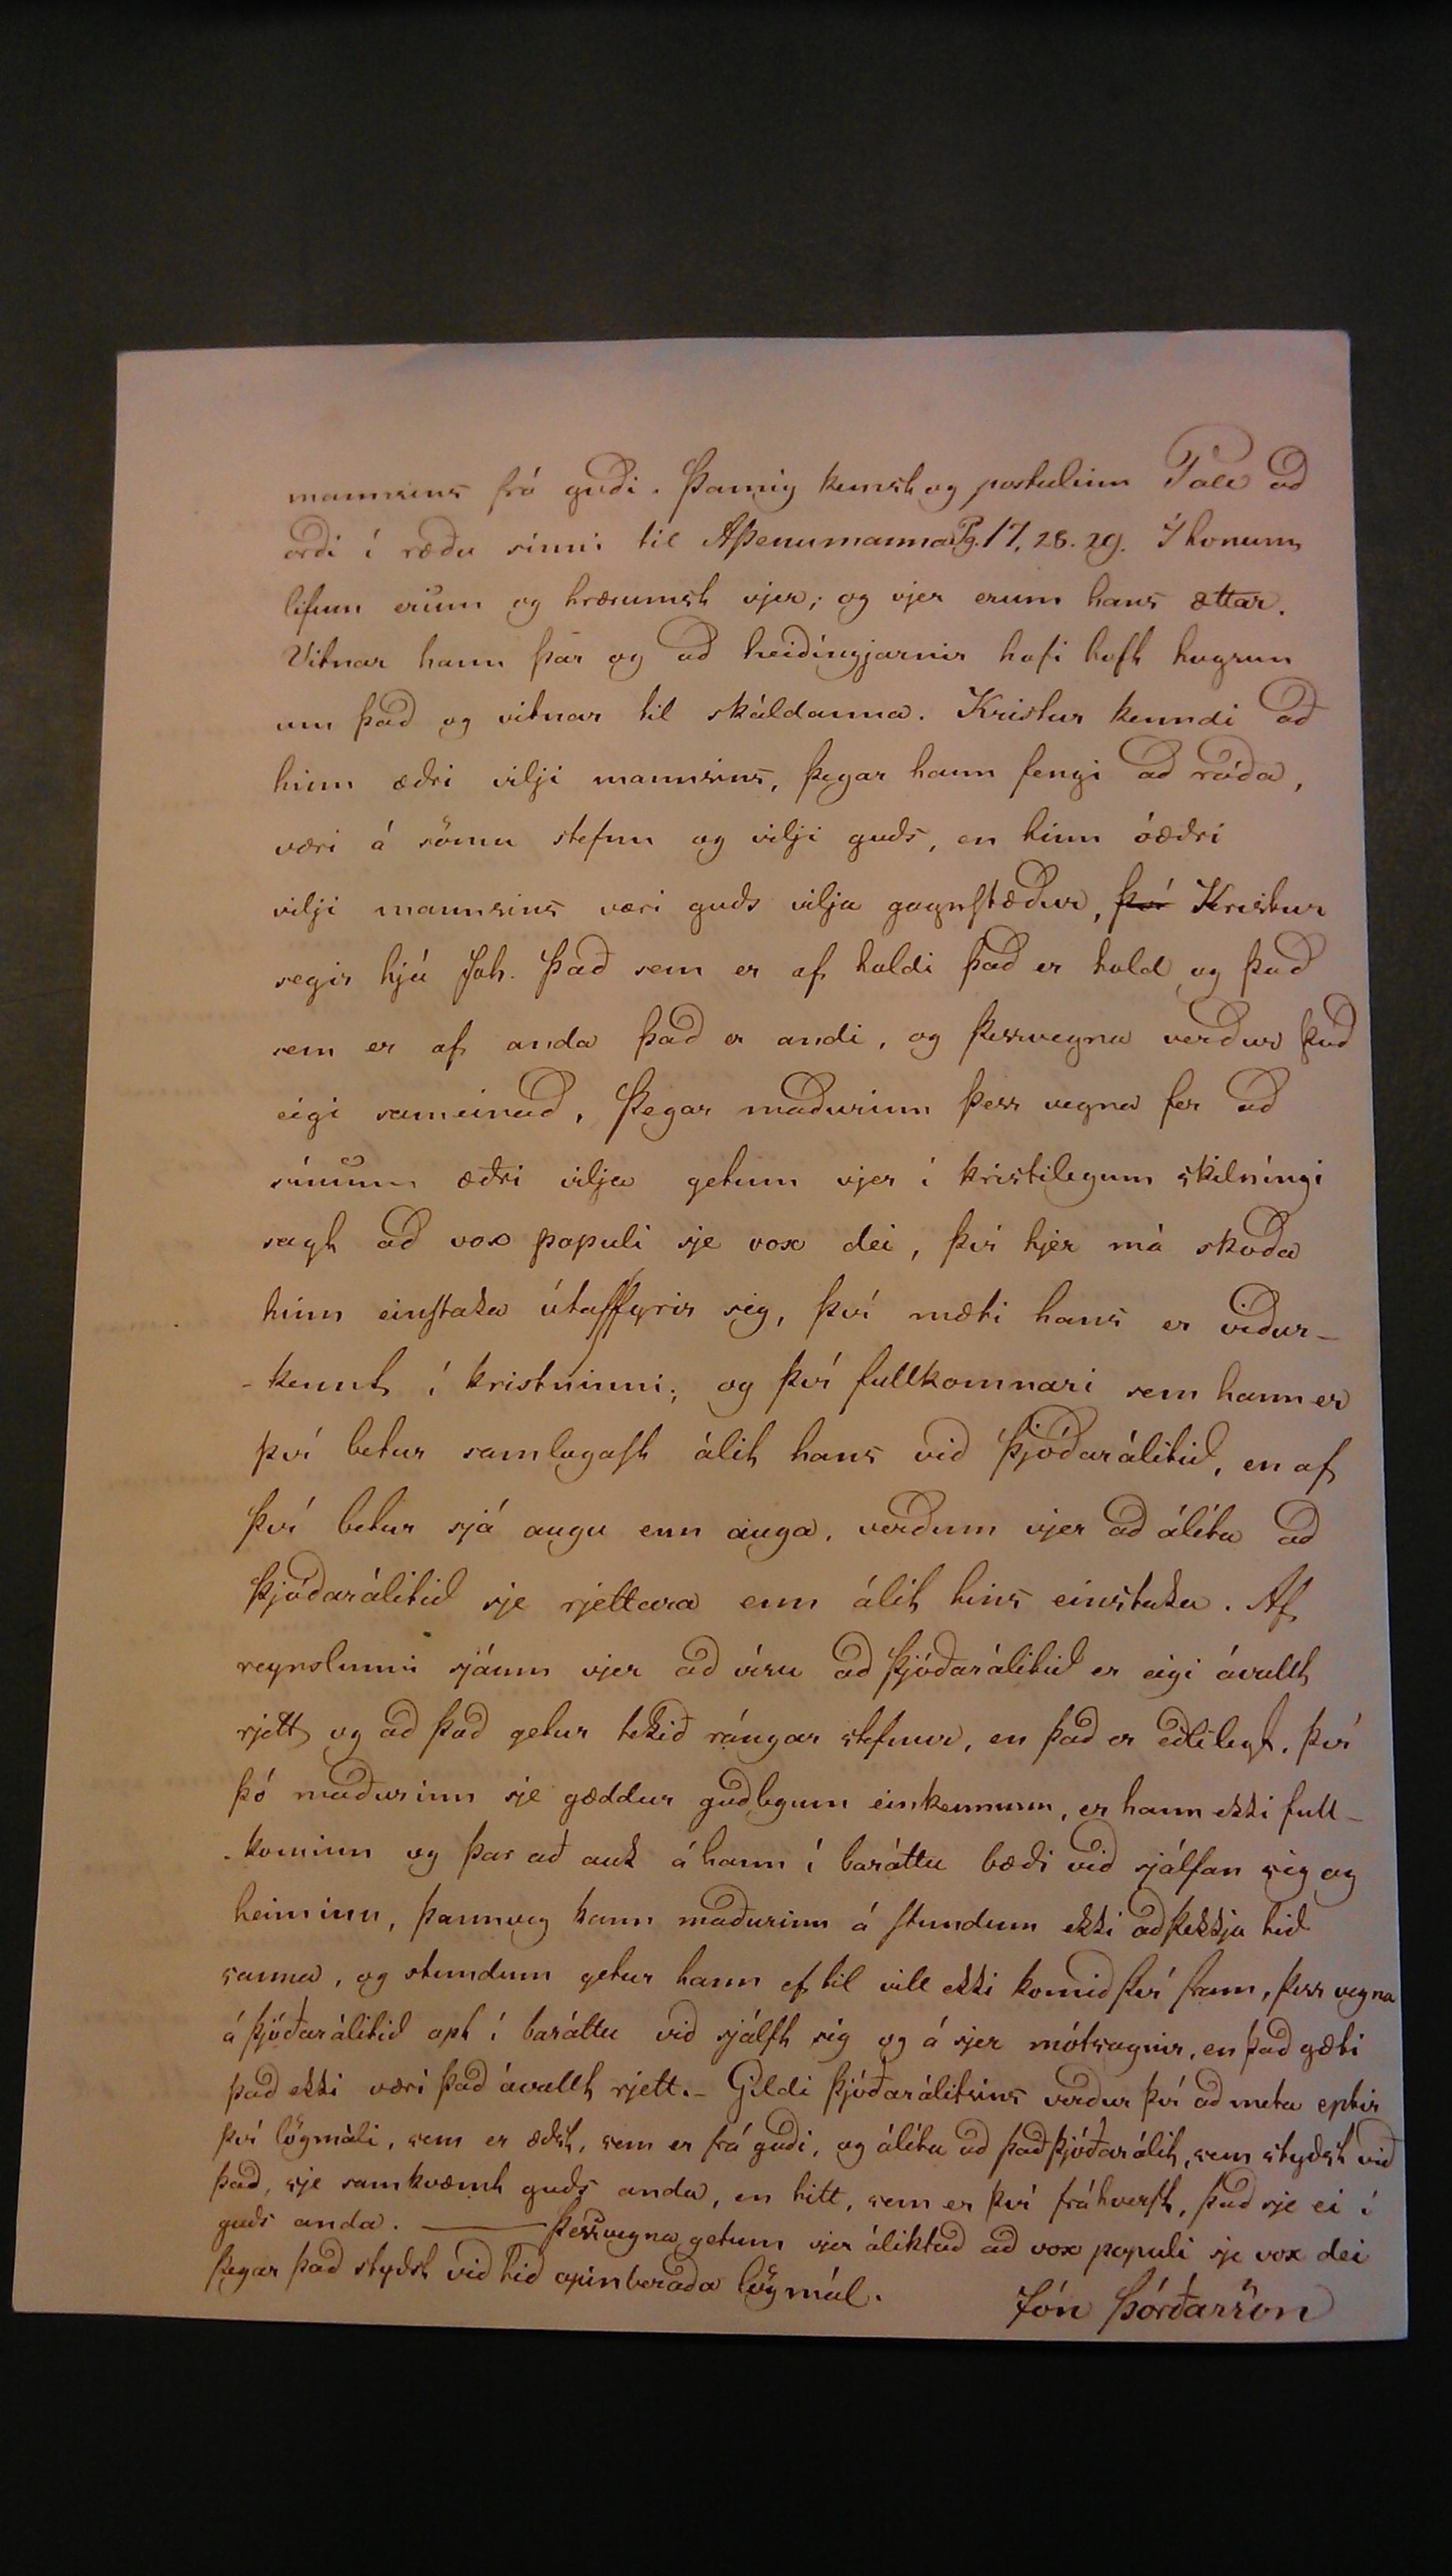 mannsins frá guði. Þannig kemst og postulinn Páll að
orði í ræðu sinni til Aþenumanna Pg. 17, 28. 29. Í honum
lifum erum og hrærumst vjer; og vjer erum hans ættar.
Vitnar hann þar og að heiðíngjarnir hafi haft hugrun
um það og vitnar til skáldanna. Kristur kenndi að
hinn æðri vilji mannsins, þegar hann fengi að ráða,
væri á sömu stefnu og vilji guðs, en hinn óæðri
vilji mannsins væri guðs vilja gagnstæður, því Kristur
segir hjá Joh. Það sem er af holdi það er hold og það
sem er af anda það er andi, og þessvegna verður það
eigi sameinað. Þegar maðurinn þess vegna fer að
sínum æðri vilja getum vjer í kristilegum skilníngi
sagt að vox populi sje vox dei, því hjer má skoða
hinn einstaka útaffyrir sig, því mæti hans er viður-
-kennt í kristninni; og því fullkomnari sem hann er
því betur samlagast álit hans við þjóðarálitið, en af
því betur sjá augu enn auga, verðum vjer að álíta að
þjóðarálitið sje rjettara enn álit hins einstaka. Af
reynslunni sjáum vjer að vísu að þjóðarálitið er eigi ávallt
rjett og að það getur tekið rángar stefnur, en það er eðlilegt, því
þó maðurinn sje gæddur guðlegum einkennum, er hann ekki full-
-kominn og þar að auk á hann í baráttu bæði við sjálfan sig og
heiminn, þannveg kann maðurinn á stundum ekki að þekkja hið
sanna, og stundum getur hann ef til vill ekki komið því fram, þess vegna
á þjóðarálitið opt í baráttu við sjálft sig og á sjer mótsagnir, en það gæti
það ekki væri það ávallt rjett.- Gildi þjóðarálitsins verður því að meta eptir
því lögmáli, sem er æðst, sem er frá guði, og álíta að það þjóðarálit, sem styðst við
það, sje samkvæmt guðs anda, en hitt, sem er því fráhverft, það sje ei í
guðs anda. — Þessvegna getum vjer áliktað að vox populi sje vox dei
þegar það styðst við hið opinberaða lögmál.
Jón Þórðarson